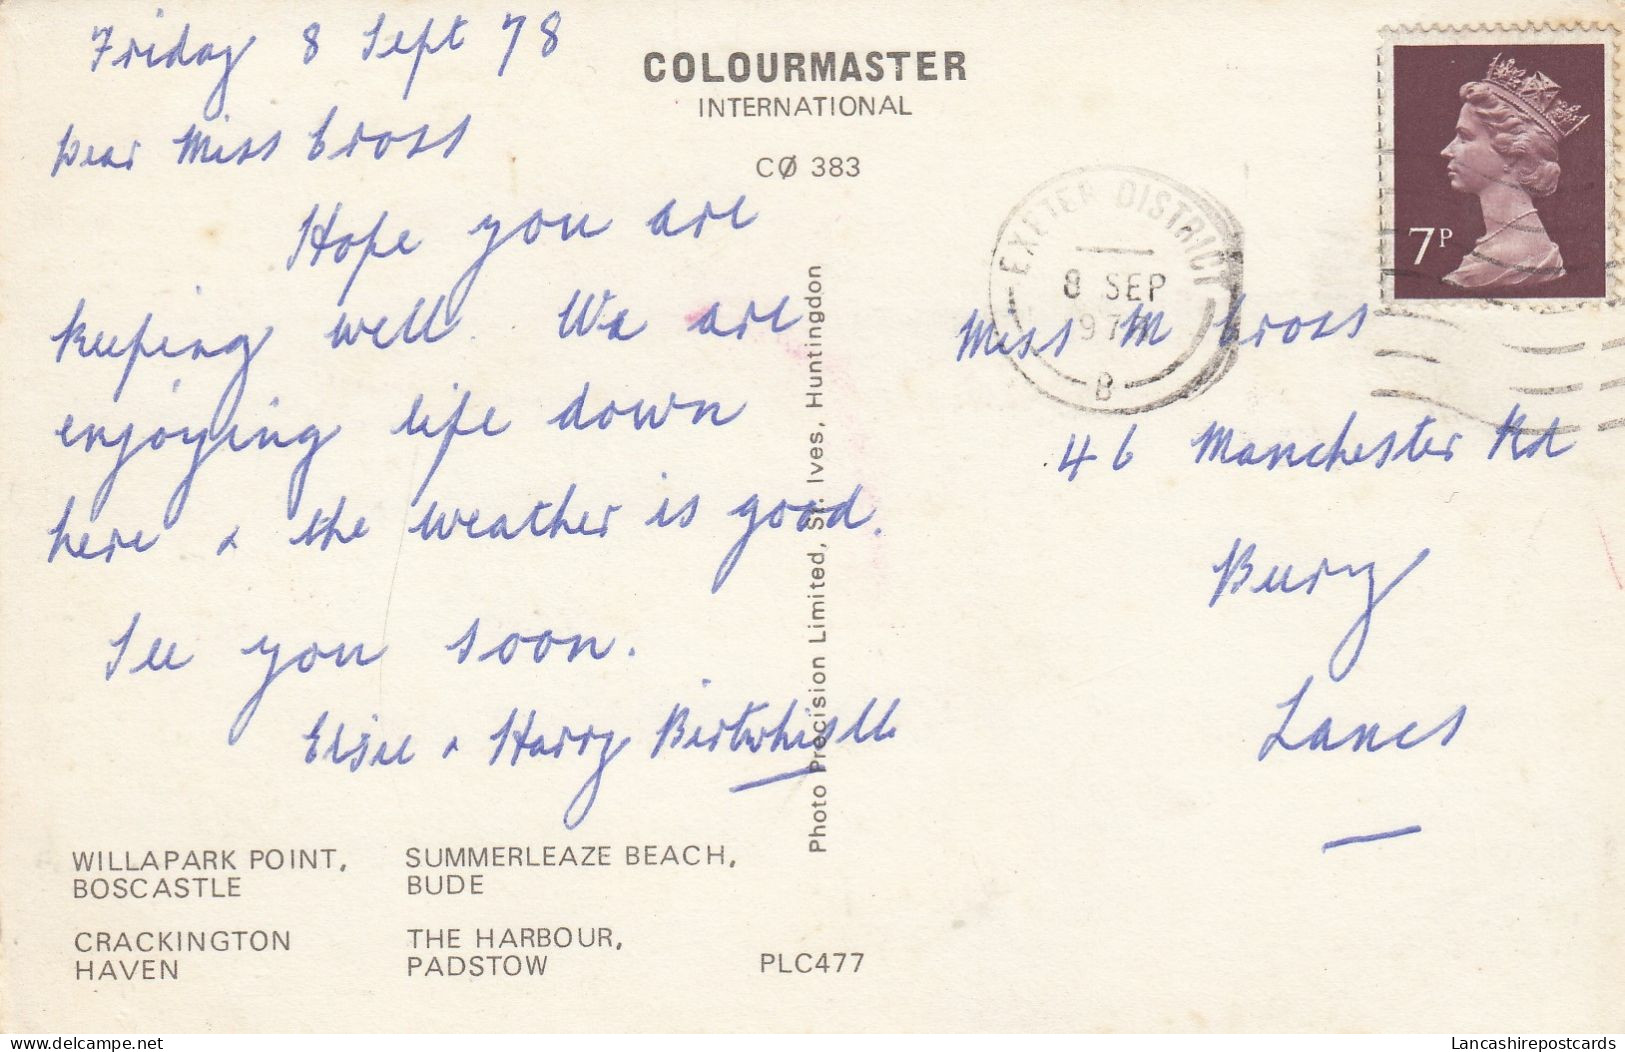 Friday 8 Sept 78
Dear Miss Cross
Hope you are
keeping well. We are
enjoying life down
here & the weather is good.
See you soon.
Elsie & Harry Birtwhistle
WILLAPARK POINT,
BOSCASTLE
SUMMERLEAZE BEACH,
BUDE
CRACKINGTON
HAVEN
THE HARBOUR,
PADSTOW
PLC477
COLOURMASTER
INTERNATIONAL
CØ 383
Photo Precision Limited, St. Ives, Huntingdon
EXETER DISTRICT
8 SEP
1978
B
7P
Miss M Cross
46 Manchester Rd
Bury
Lancs
delcampe.net
Lancashirepostcards